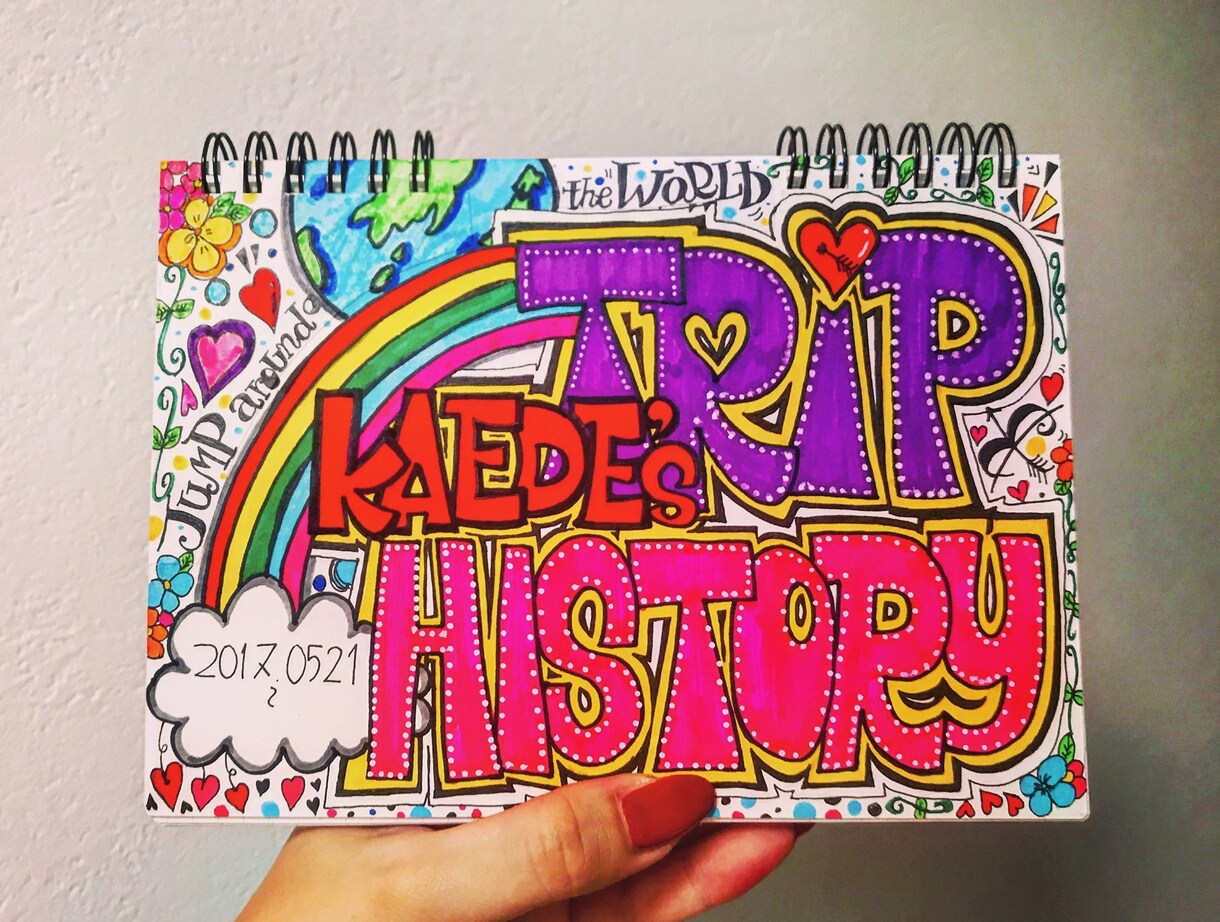 JUMP around
the WORLD
TRiP
KAEDE's
HISTORY
2017.0521
~